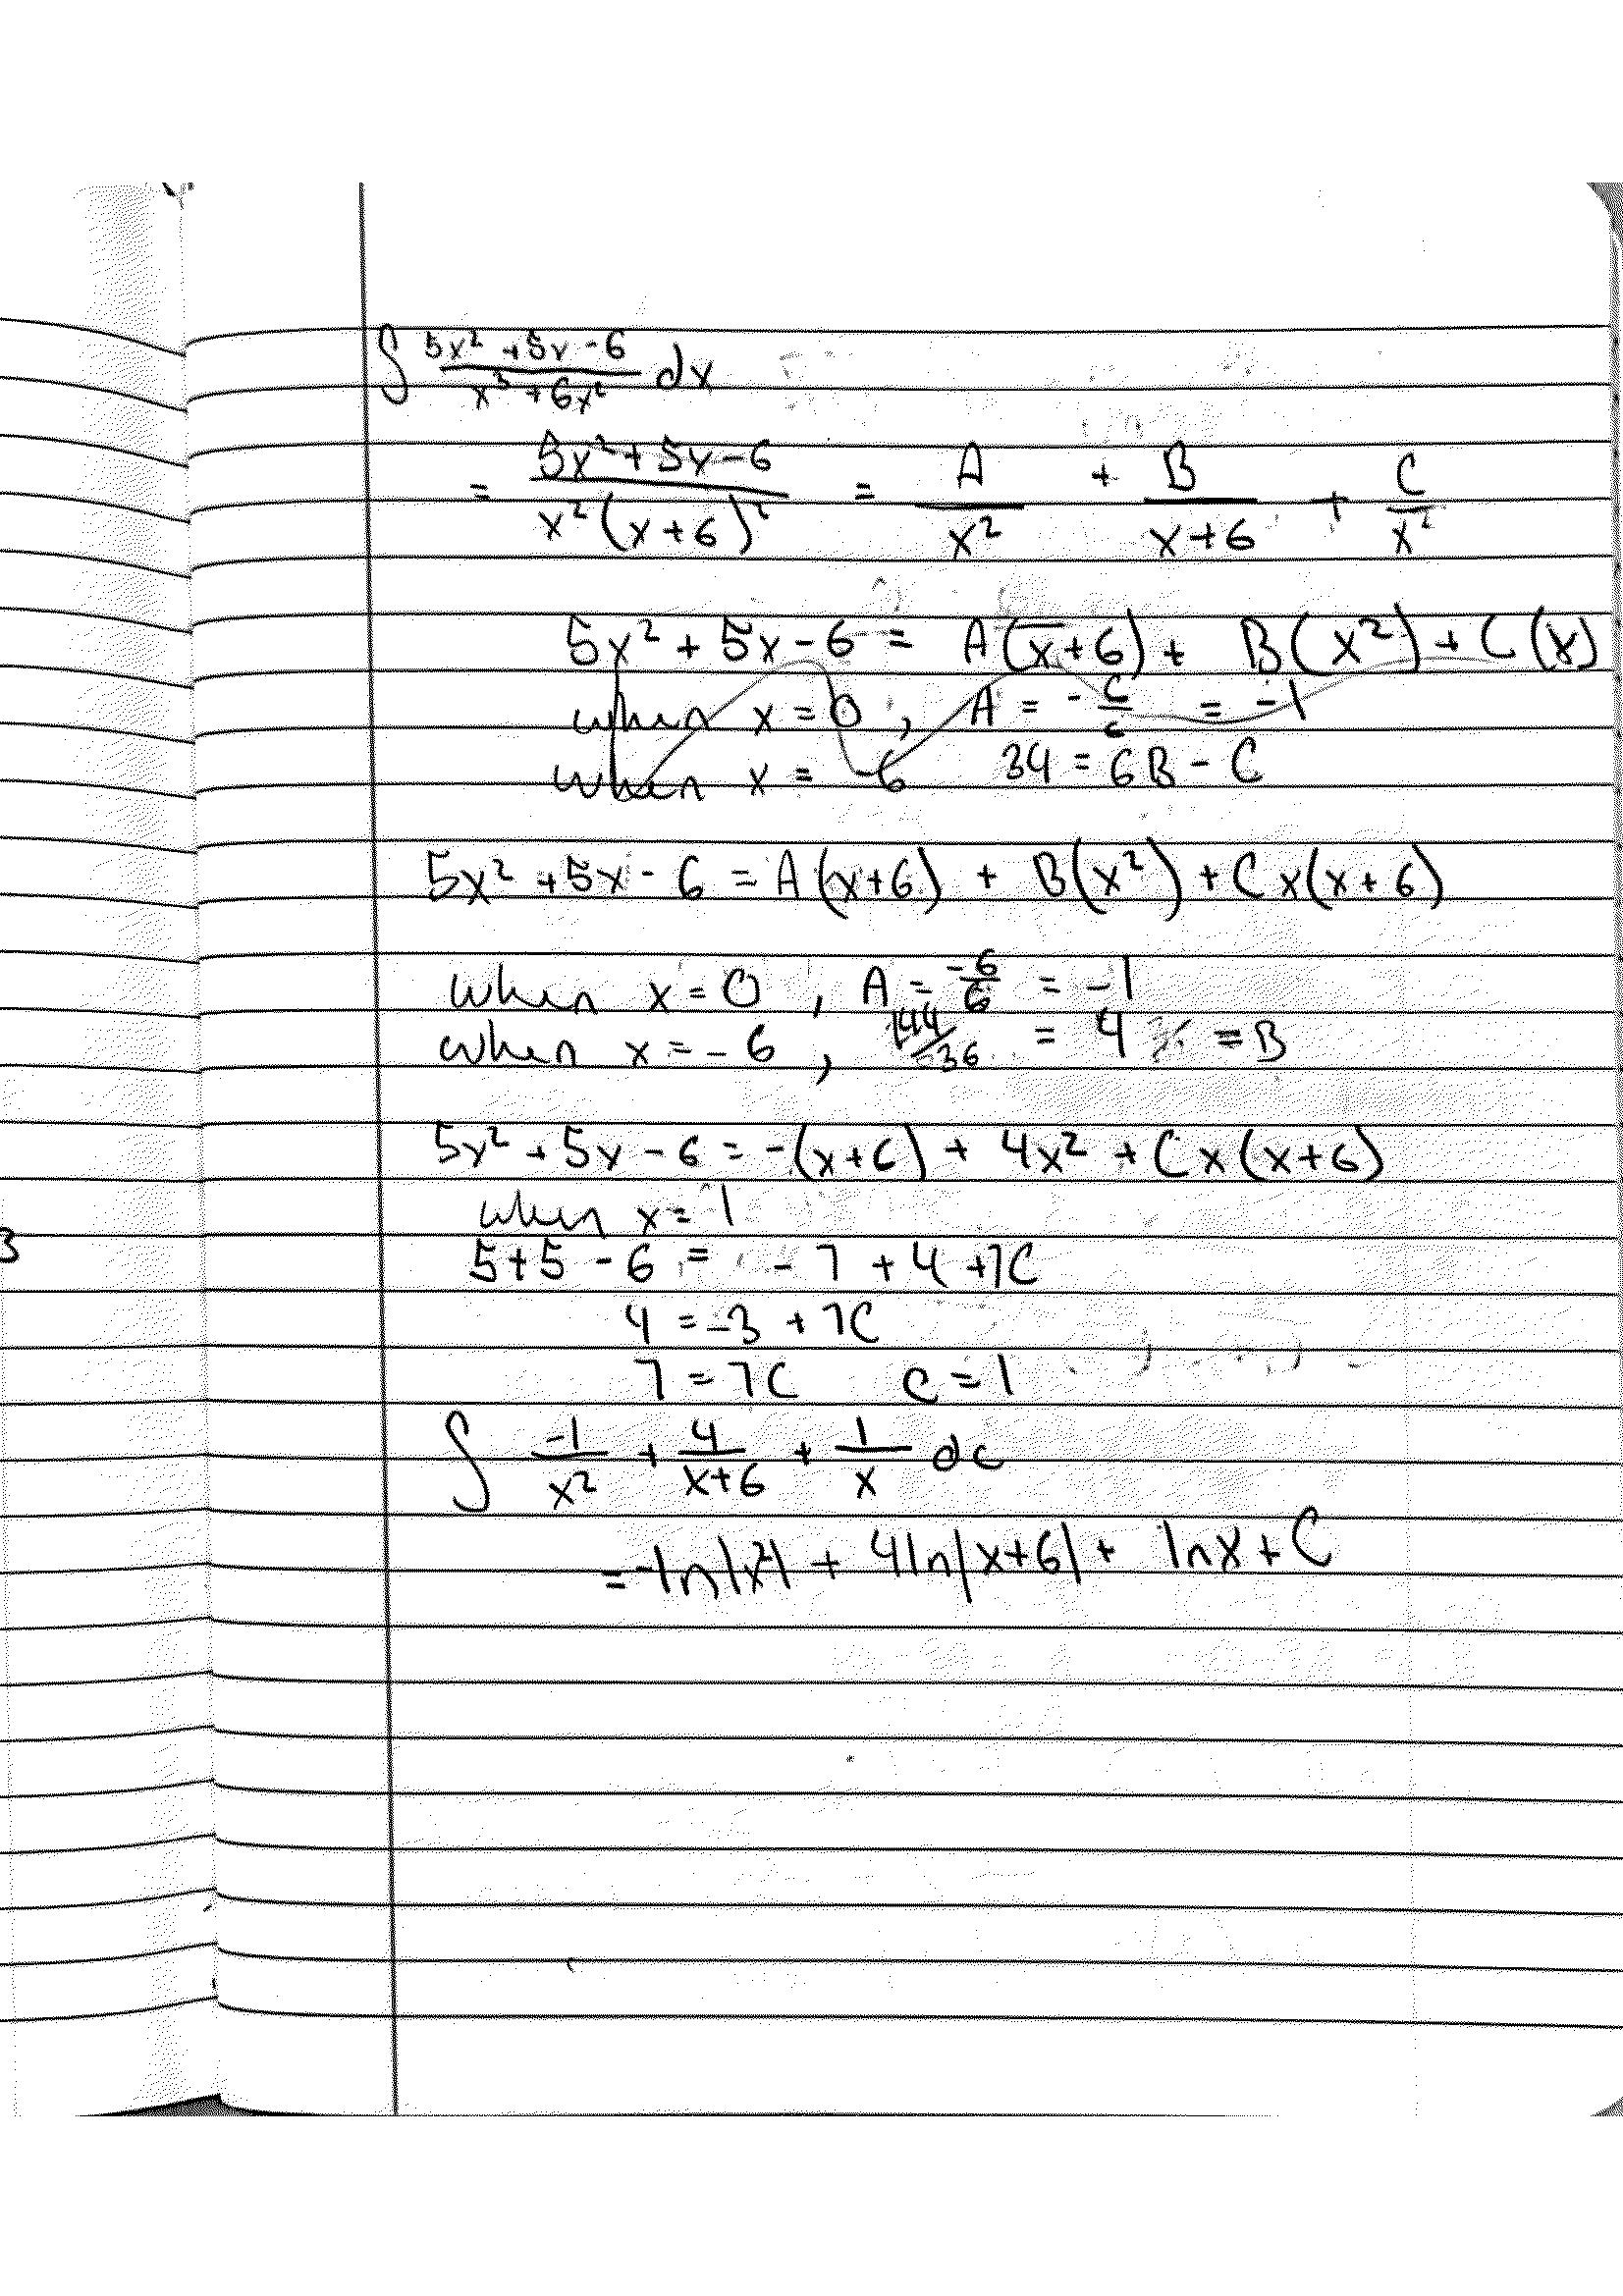 ∫ (5x² + 5x - 6)/(x³ + 6x²) dx
= (5x² + 5x - 6)/(x²(x + 6)²) = A/x² + B/(x+6) + C/x²
5x² + 5x - 6 = A(x+6) + B(x²) + C(x)
when x = 0, A = -6/6 = -1
when x = -6 34 = 6B - C
5x² + 5x - 6 = A(x+6) + B(x²) + C x(x + 6)
when x = 0, A = -6/6 = -1
when x = -6, 144/36 = 4 = B
5x² + 5x - 6 = -(x+6) + 4x² + C x(x+6)
when x = 1
5+5 - 6 = - 7 + 4 + 7C
4 = -3 + 7C
7 = 7C C = 1
∫ -1/x² + 4/(x+6) + 1/x dc
= -ln|x²| + 4ln|x+6| + lnx + C
3